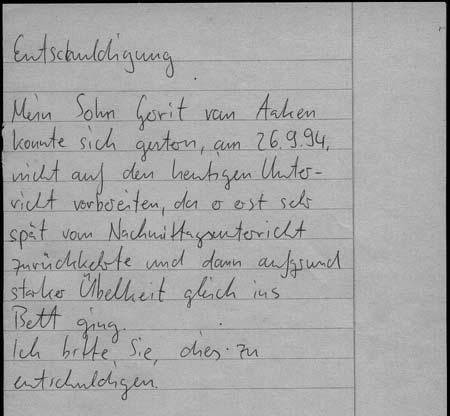 Entschuldigung
Mein Sohn Gerit van Aaken
konnte sich gestern, am 26.9.94,
nicht auf den heutigen Unter-
richt vorbereiten, da er erst sehr
spät vom Nachmittagsunterricht
zurückkehrte und dann aufgrund
starker Übelkeit gleich ins
Bett ging.
Ich bitte Sie, dies zu
entschuldigen.